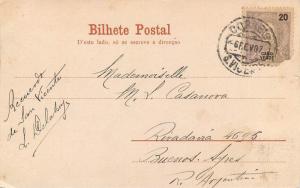 Bilhete Postal
D'este lado, só se escreve a direcção
20
CORREIO
6 FEV 07
S. VICENTE
CABO VERDE
Mademoiselle
M. L. Casanova
Rivadavia 4695
Buenos Ayres
R. Argentina
Recuerdo
de San Vicente
L.